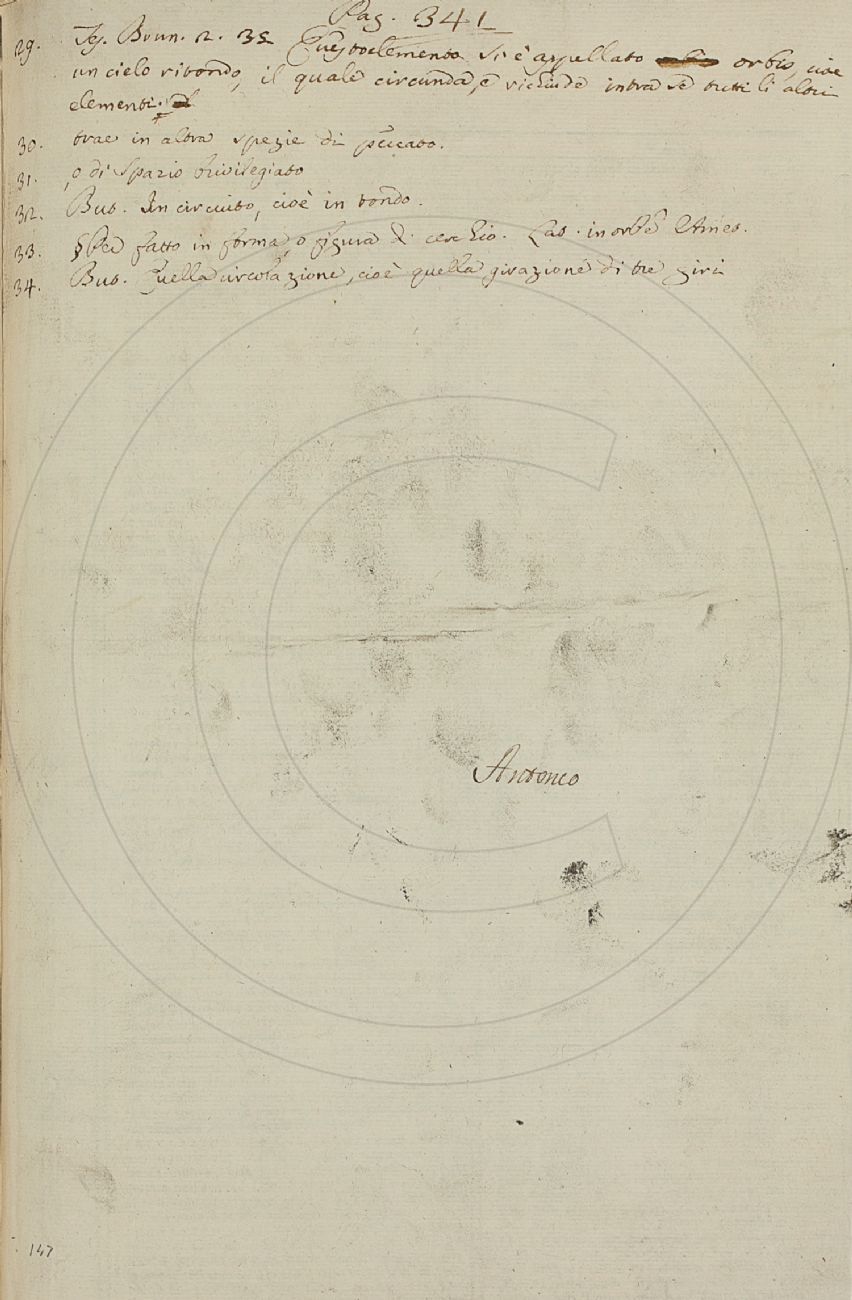 Pag. 341
29. Tes. Brun. 2. 35 Questo elemento si è appellato orbis, cioè
un cielo ritondo, il quale circunda, e richiude intra sè tutti li altri
elementi.
30. trae in altra spezie di peccato.
31. , o di Spazio privilegiato
32. But. In circuito, cioè in tondo.
33. § Per fatto in forma, o figura di cerchio. Lat. in orbe
34. But. Quella circolazione, cioè quella girazione di tre giri
Antonio
147